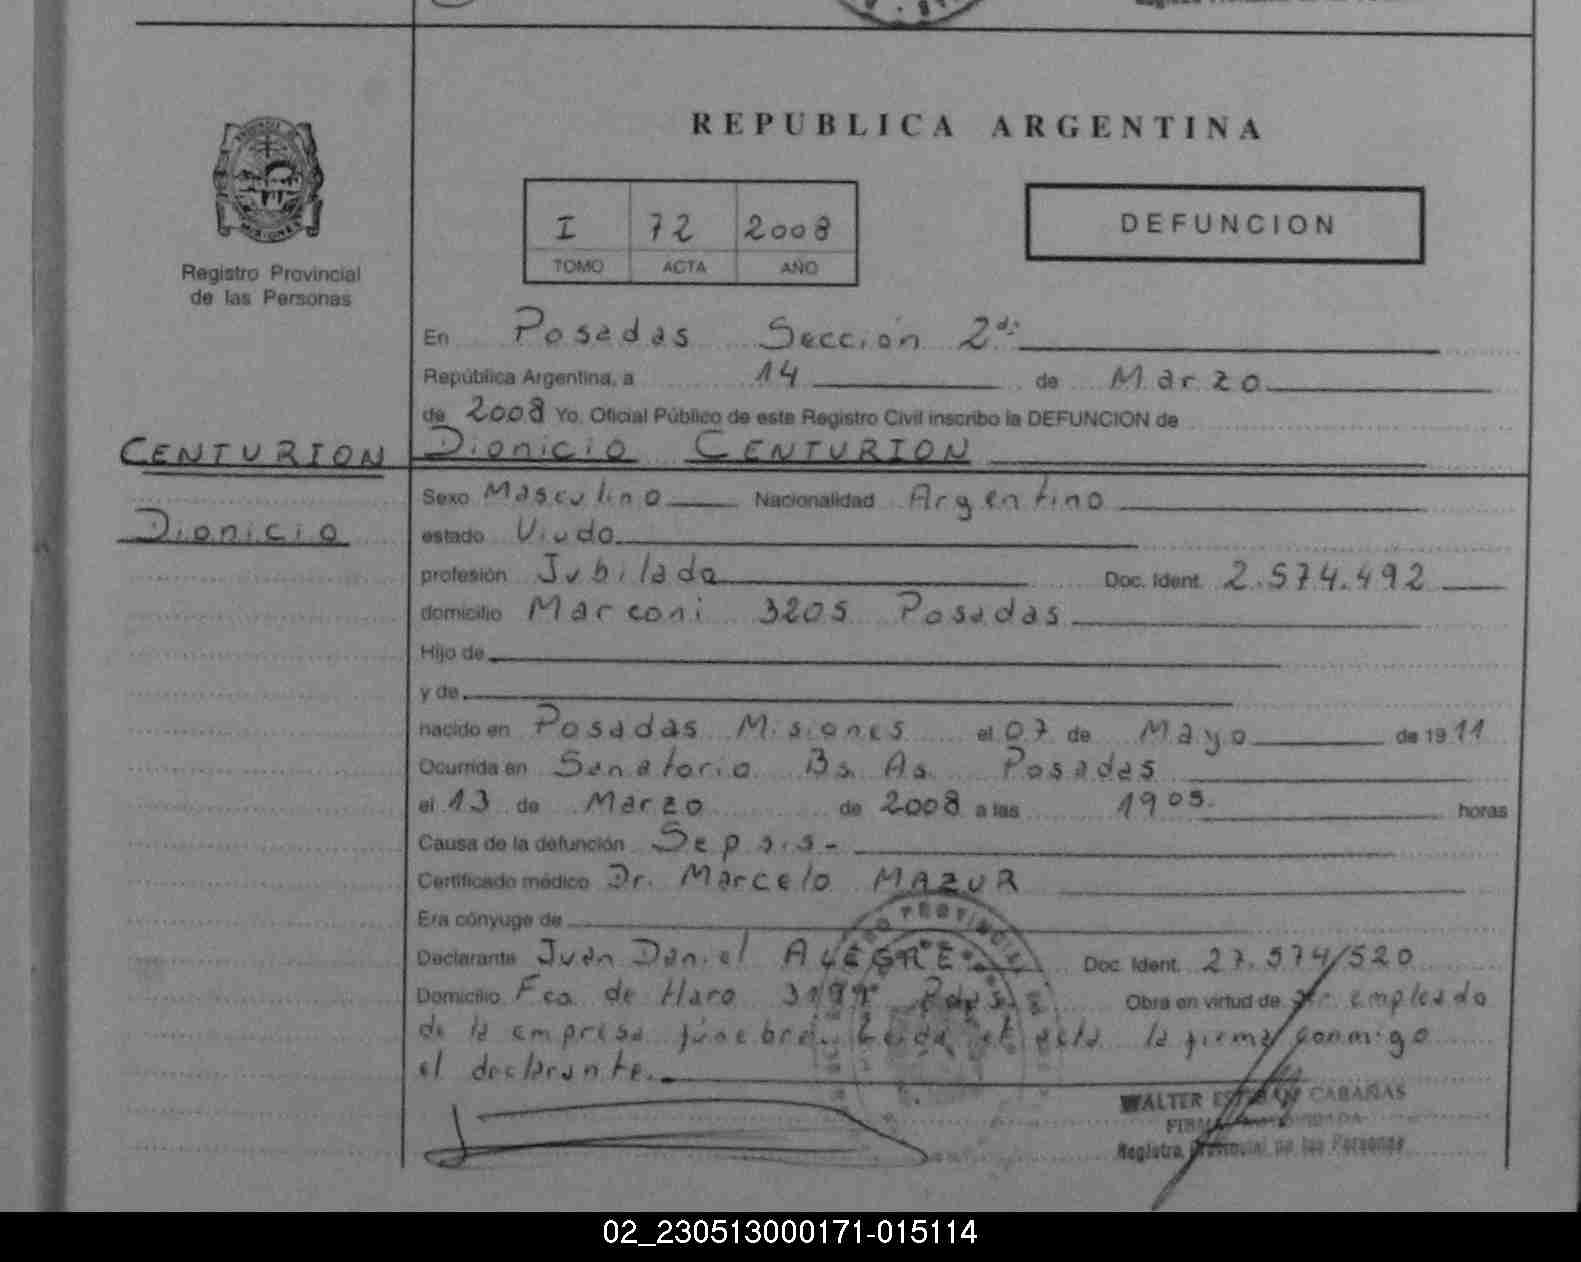 REPUBLICA ARGENTINA
I 72 2008
TOMO ACTA AÑO
DEFUNCION
MISIONES
Registro Provincial
de las Personas
En Posadas Sección 2da
República Argentina, a 14 de Marzo
de 2008 Yo, Oficial Público de este Registro Civil inscribo la DEFUNCION de
CENTURION Dionicio CENTURION
Sexo Masculino Nacionalidad Argentino
Dionicio
estado Viudo
profesión Jubilado Doc. Ident. 2.574.492
domicilio Marconi 3205 Posadas
Hijo de
y de
nacido en Posadas Misiones el 07 de Mayo de 1911
Ocurrida en Sanatorio Bs. As. Posadas
el 13 de Marzo de 2008 a las 19 05 horas
Causa de la defunción Sepsis-
Certificado médico Dr. Marcelo MAZUR
Era cónyuge de
Declarante Juan Daniel ALEGRE Doc. Ident. 27.574/520
Domicilio Fco. de Haro Pdas Obra en virtud de ser empleado
de la empresa fúnebre. Leida el acta la firma conmigo
el declarante.
WALTER ESTEBAN CABAÑAS
FIRMA AUTORIZADA
Registro Provincial de las Personas
02_230513000171-015114